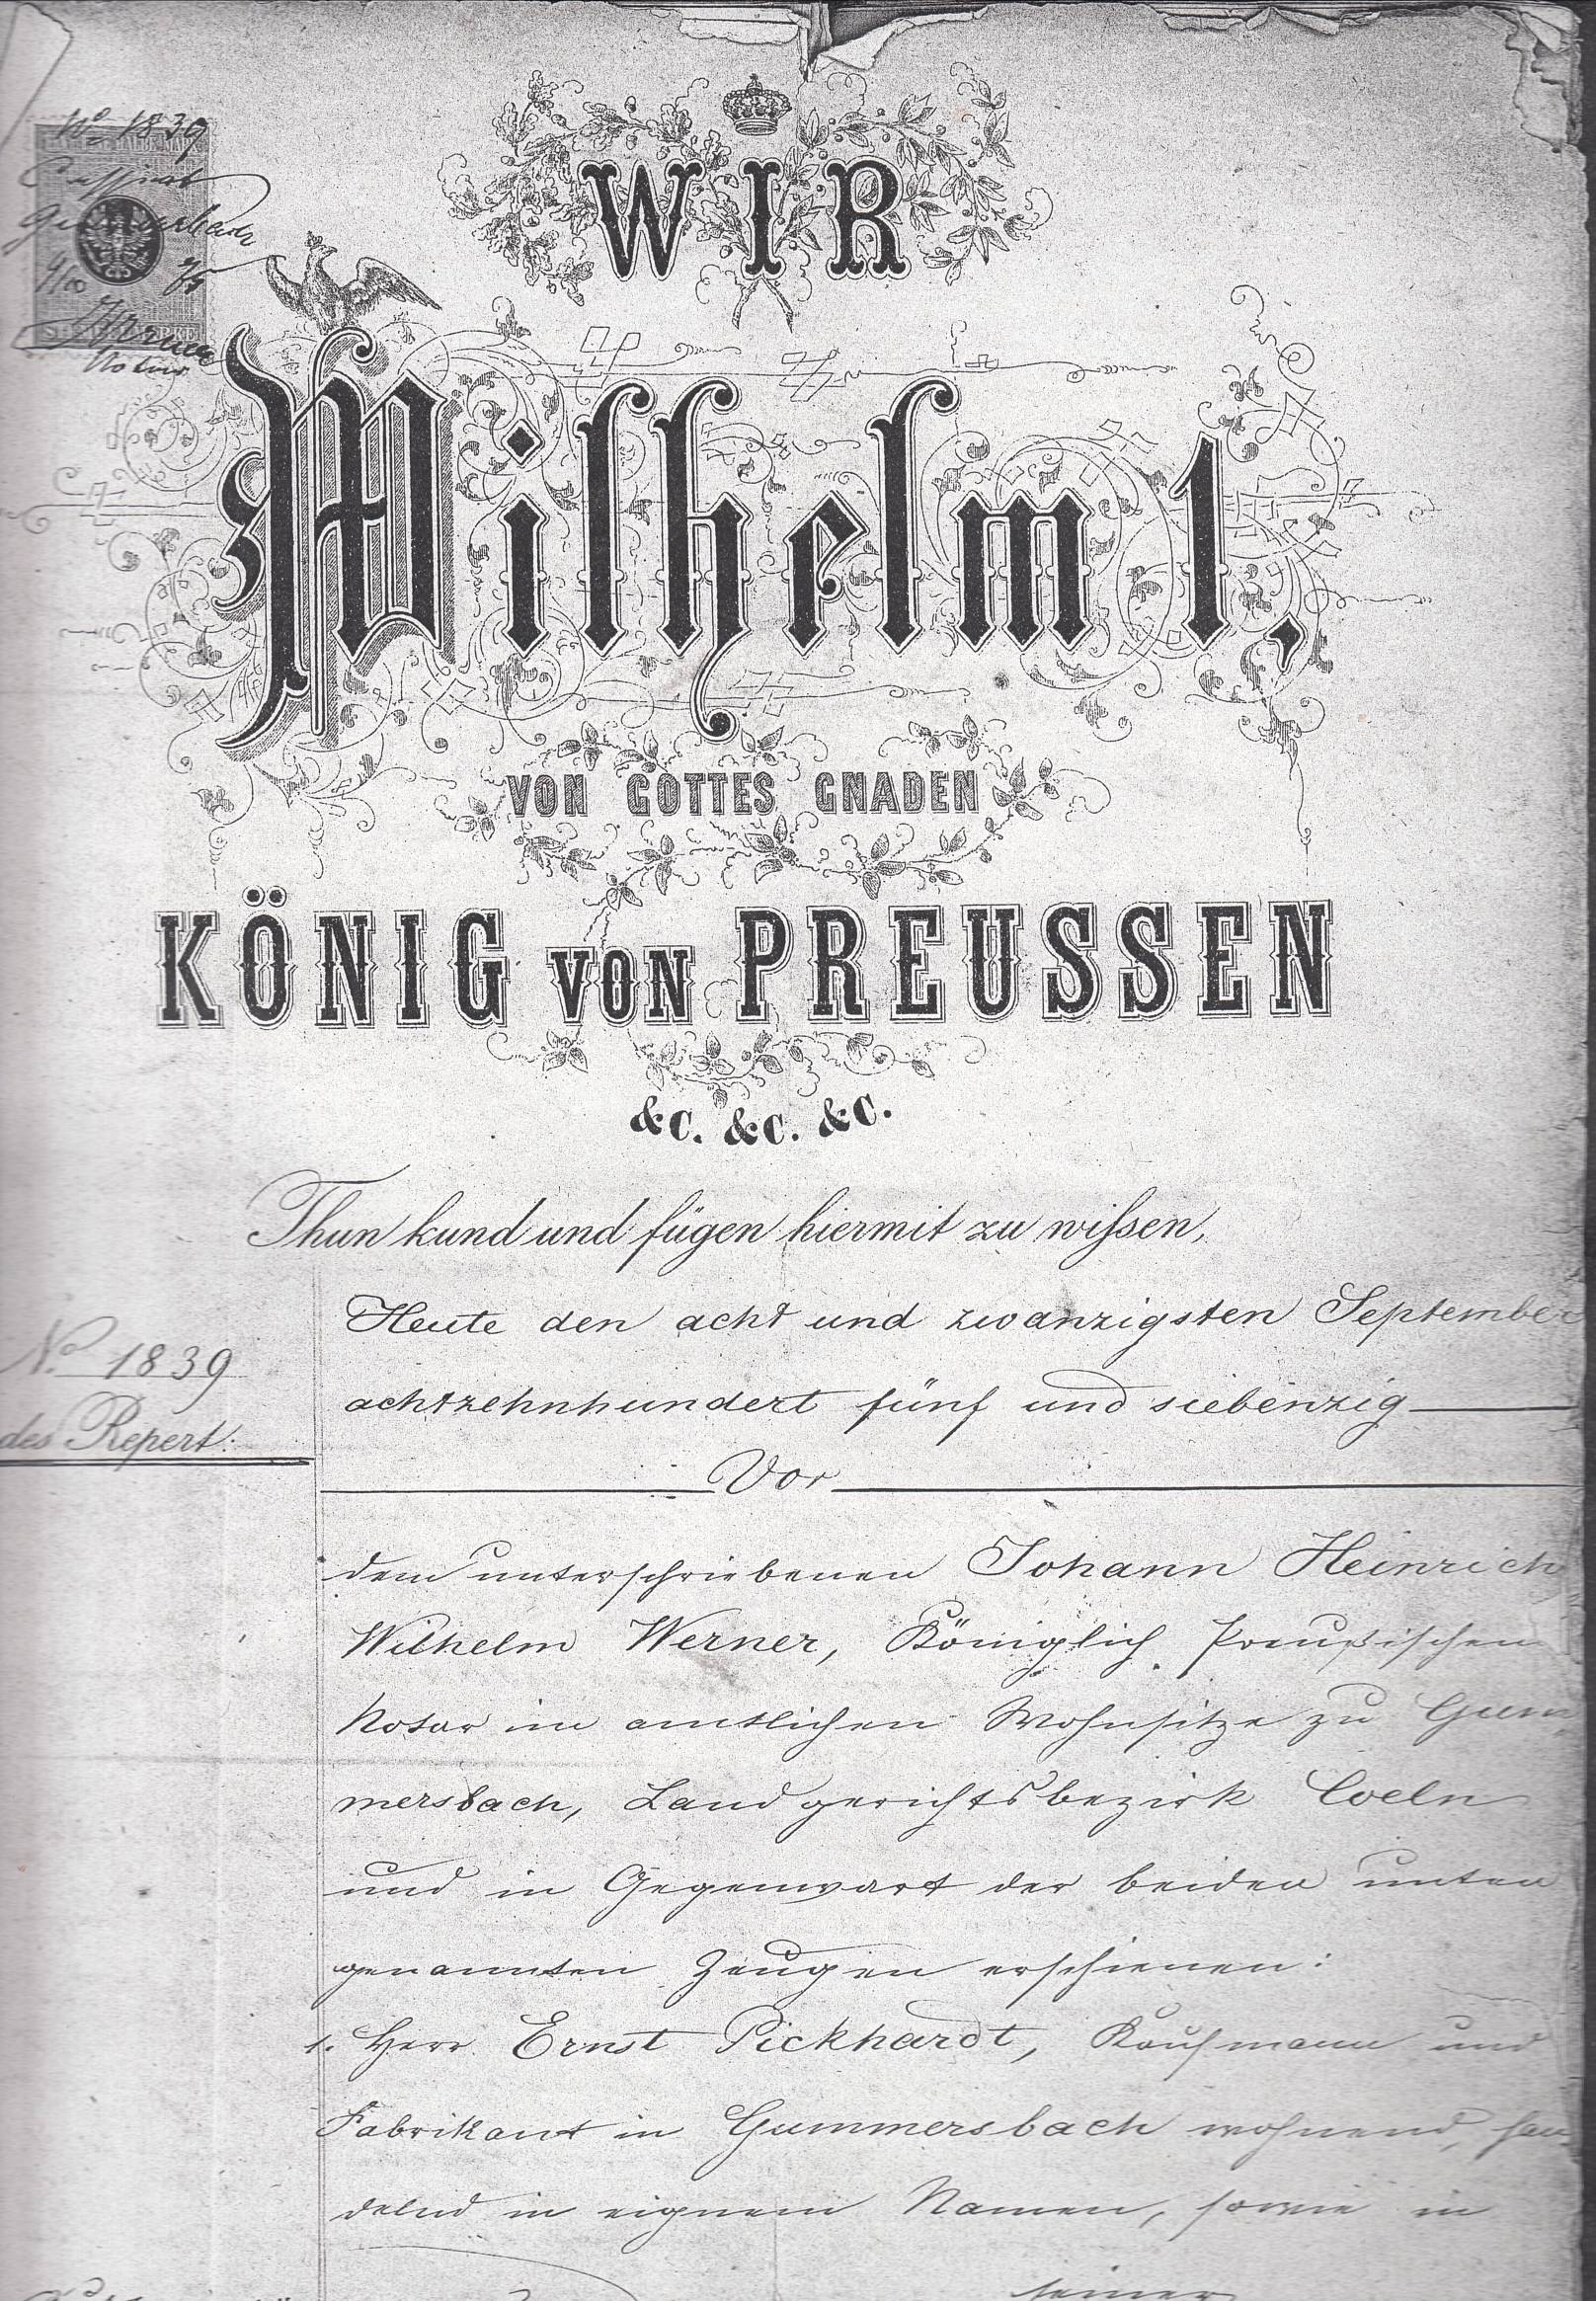 No 1839
Cassirt
Gummersbach
4/10 75
Werner
Notar
WIR
Wilhelm 1,
VON GOTTES GNADEN
KÖNIG VON PREUSSEN
&C. &C. &C.
Thun kund und fügen hiermit zu wissen,
Heute den acht und zwanzigsten September
achtzehnhundert fünf und siebenzig
No. 1839
des Repert.
Vor
dem unterschriebenen Johann Heinrich
Wilhelm Werner, Königlich Preußischen
Notar im amtlichen Wohnsitze zu Gum
mersbach, Landgerichtsbezirk Coeln
und in Gegenwart der beiden unten
genannten Zeugen erschienen:
1. Herr Ernst Pickhardt, Kaufmann und
Fabrikant in Gummersbach wohnend, han-
delnd in eignem Namen, sowie in
seiner